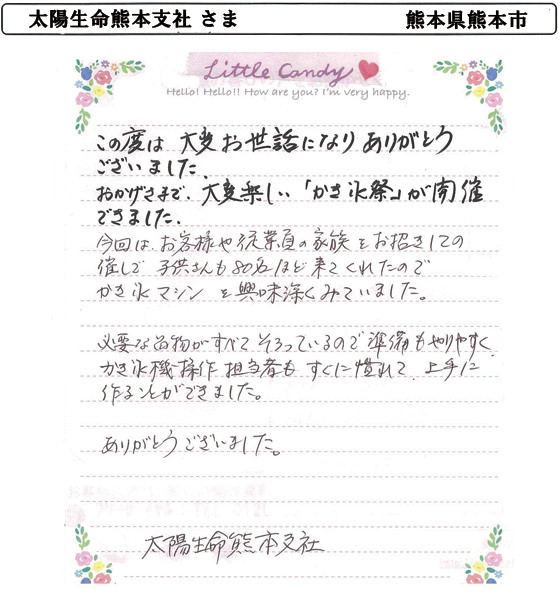 太陽生命熊本支社 さま 熊本県熊本市
Little Candy
Hello! Hello!! How are you? I'm very happy.
この度は 大変お世話になり ありがとう
ございました.
おかげさまで、大変楽しい「かき氷祭」が開催
できました.
今回は、お客様や従業員の家族をお招きしての
催しで 子供さんも80名ほど来てくれたので
かき氷マシン を興味深くみていました。
必要な品物がすべて そろっているので 準備もやりやすく
かき氷機操作 担当者も すぐに慣れて、上手に
作ることができました。
ありがとうございました。
太陽生命熊本支社